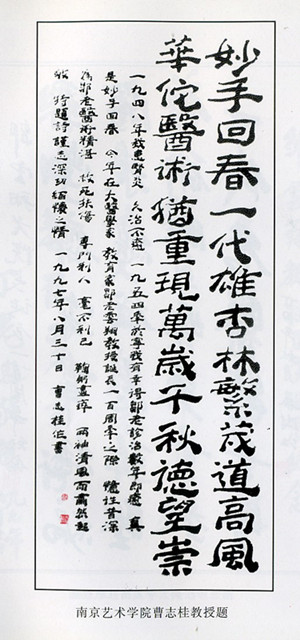 妙手回春一代雄杏林繁茂道高風
華佗醫術猶重現萬歲千秋德望崇
一九四八年我患腎炎久治不癒一九五四年於寧我有幸得鄒老診治數年即癒真
是妙手回春今年在大醫學家教育家鄒老雲翔教授誕辰一百周年之際憶往昔深
為鄒老醫術精湛救死扶傷專門利人毫不利己鞠躬盡瘁兩袖清風而肅然起
敬特題詩謹志深切緬懷之情一九九七年八月三十日曹志桂作書
南京艺术学院曹志桂教授题